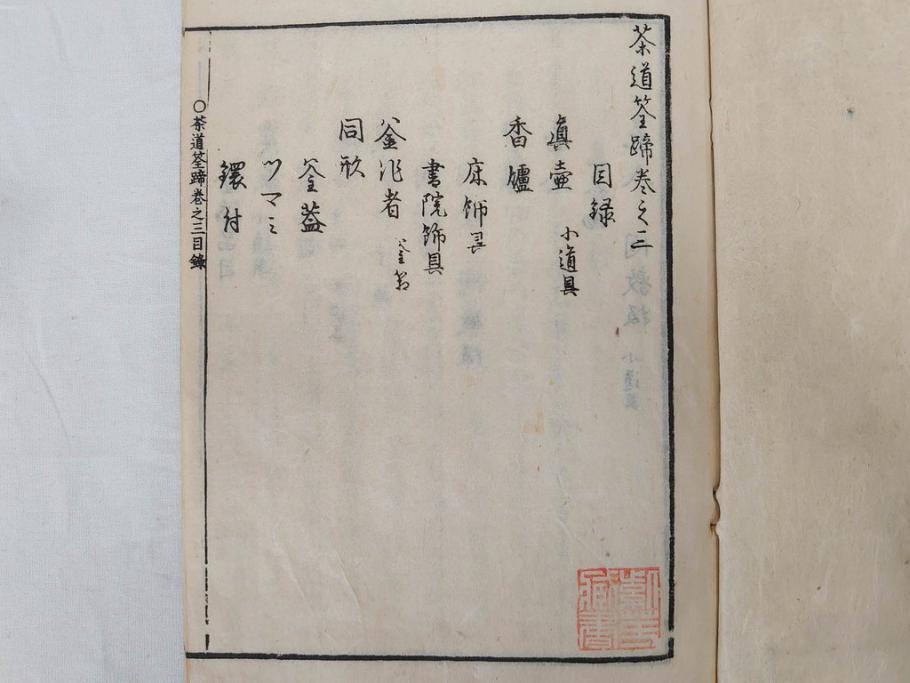 茶道筌蹄巻之三
目録
眞壷 小道具
香爐
床飾具
書院飾具
釜作者 釜師
同形
釜蓋
ツマミ
鐶付
○茶道筌蹄巻之三目録